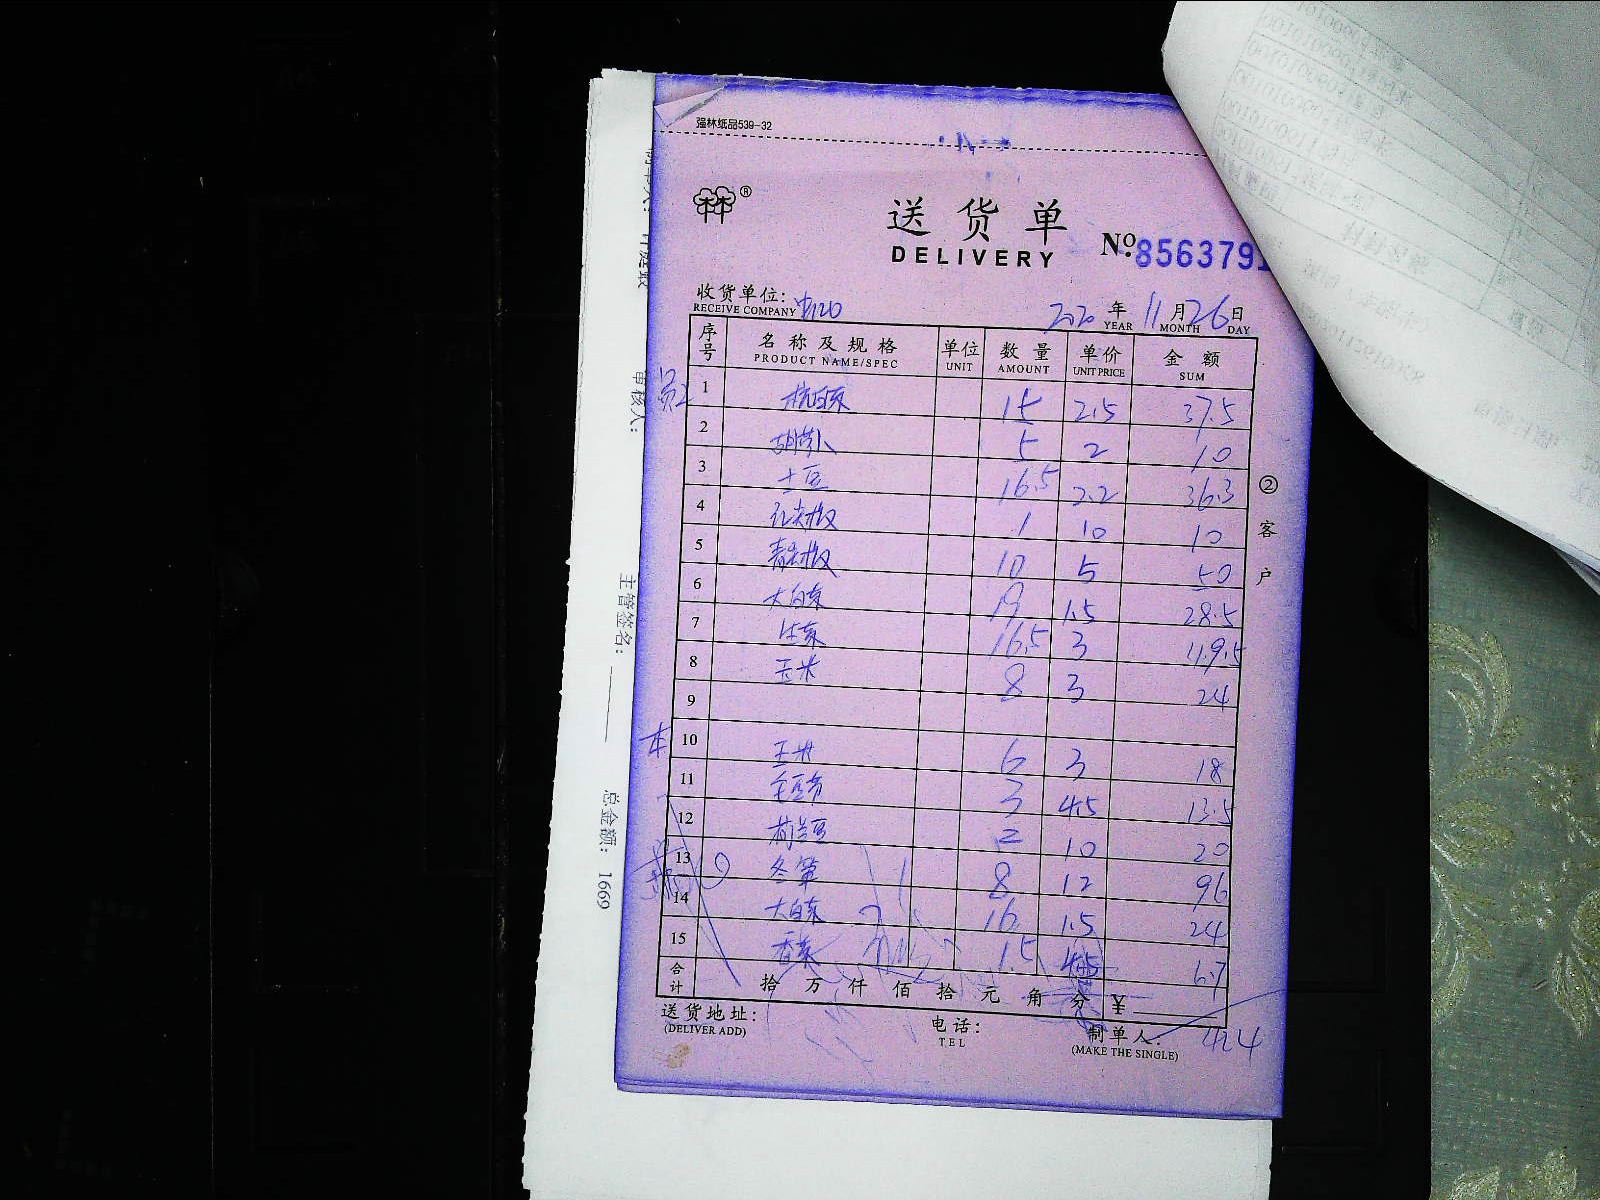 强林纸品539-32
送货单
DELIVERY
No. 8563791
收货单位:
RECEIVE COMPANY
2020 年 11 月 26 日
YEAR MONTH DAY
序号 名称及规格 单位 数量 单价 金额
PRODUCT NAME/SPEC UNIT AMOUNT UNIT PRICE SUM
1 杭白菜 15 2.5 37.5
2 胡萝卜 5 2 10
3 土豆 16.5 2.2 36.3
4 红尖椒 1 10 10
5 青尖椒 10 5 50
6 大白菜 19 1.5 28.5
7 16.5 3 49.5
8 玉米 8 3 24
9
10 玉米 6 3 18
11 毛豆节 3 4.5 13.5
12 荷兰豆 2 10 20
13 冬笋 8 12 96
14 大白菜 16 1.5 24
15 香菜 1.5 4.5 6.7
合计 拾 万 仟 佰 拾 元 角 分 ¥
424
送货地址:
(DELIVER ADD)
电话:
TEL
制单人:
(MAKE THE SINGLE)
②客户
审核人:
主管签名:
总金额: 1669